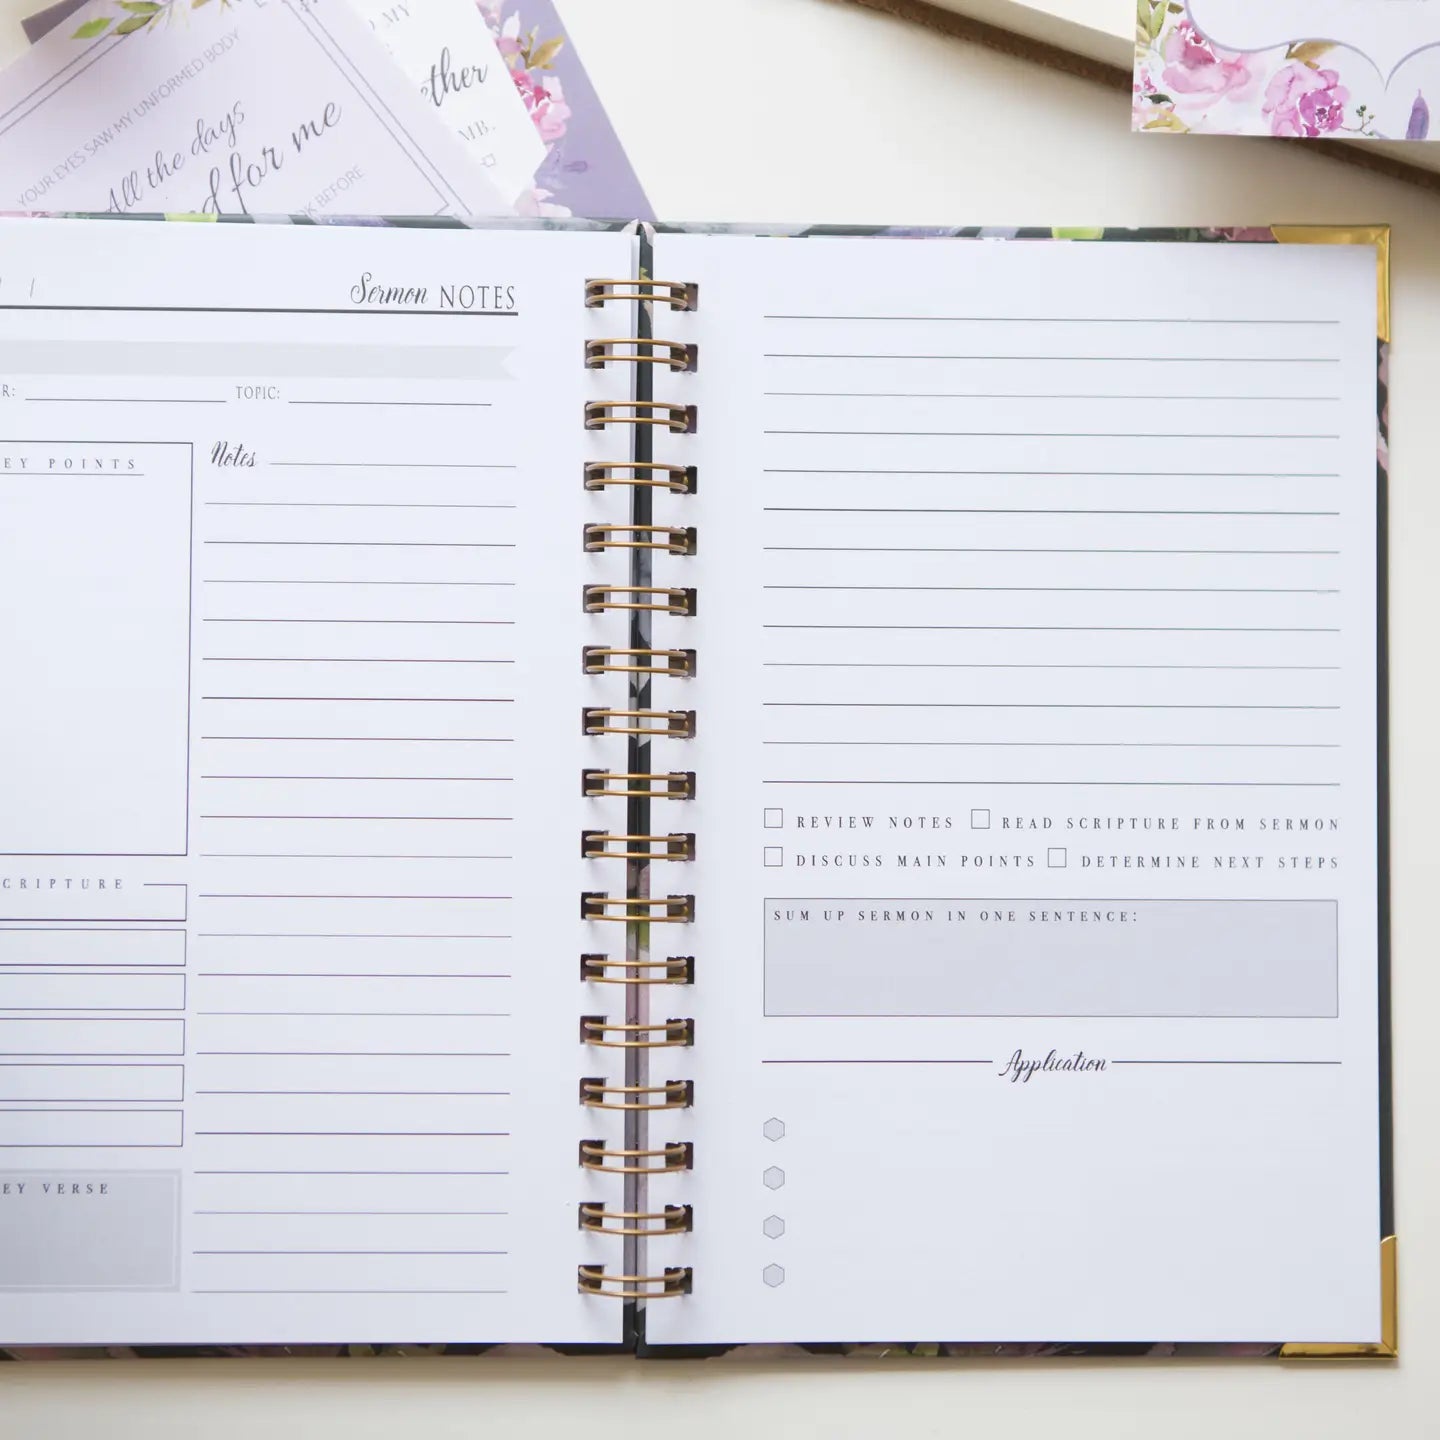 YOUR EYES SAW MY UNFORMED BODY
All the days
for me
BEFORE
MY
Sermon NOTES
TOPIC:
Notes
POINTS
VERSE
REVIEW NOTES READ SCRIPTURE FROM SERMON
DISCUSS MAIN POINTS DETERMINE NEXT STEPS
SUM UP SERMON IN ONE SENTENCE:
Application